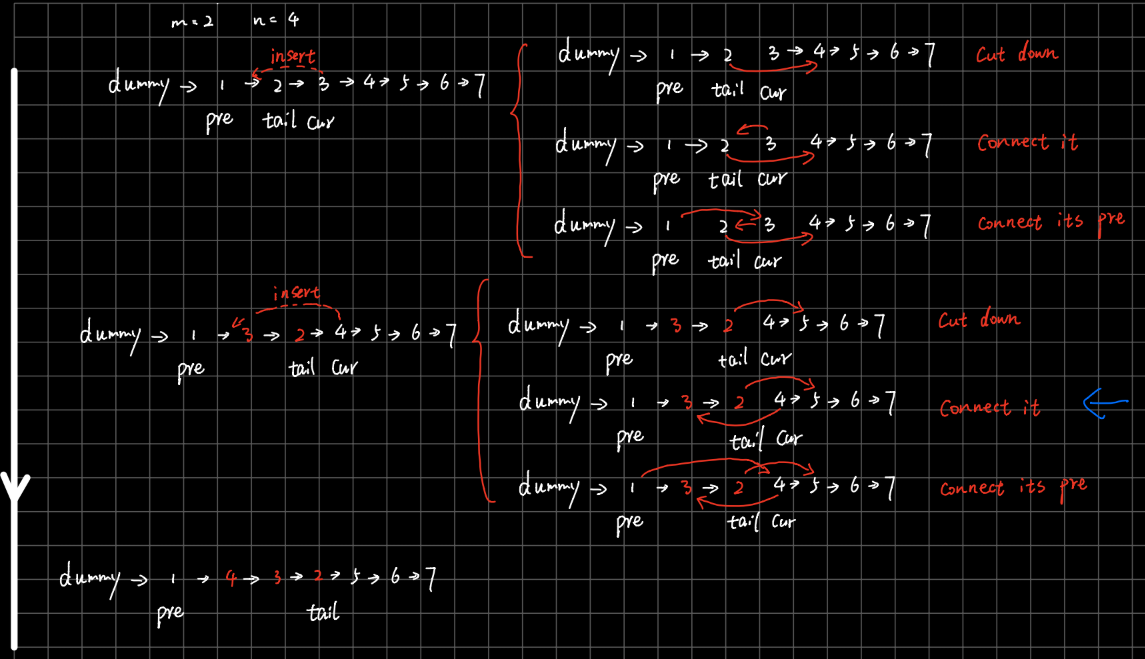 m = 2 n = 4
insert
dummy → 1 → 2 → 3 → 4 → 5 → 6 → 7
pre tail cur
dummy → 1 → 2 3 → 4 → 5 → 6 → 7 Cut down
pre tail cur
dummy → 1 → 2 3 4 → 5 → 6 → 7 Connect it
pre tail cur
dummy → 1 2 ← 3 4 → 5 → 6 → 7 Connect its pre
pre tail cur
insert
dummy → 1 → 3 → 2 → 4 → 5 → 6 → 7
pre tail cur
dummy → 1 → 3 → 2 4 → 5 → 6 → 7 Cut down
pre tail cur
dummy → 1 → 3 → 2 4 → 5 → 6 → 7 Connect it
pre tail cur
dummy → 1 → 3 → 2 4 → 5 → 6 → 7 Connect its pre
pre tail cur
dummy → 1 → 4 → 3 → 2 → 5 → 6 → 7
pre tail